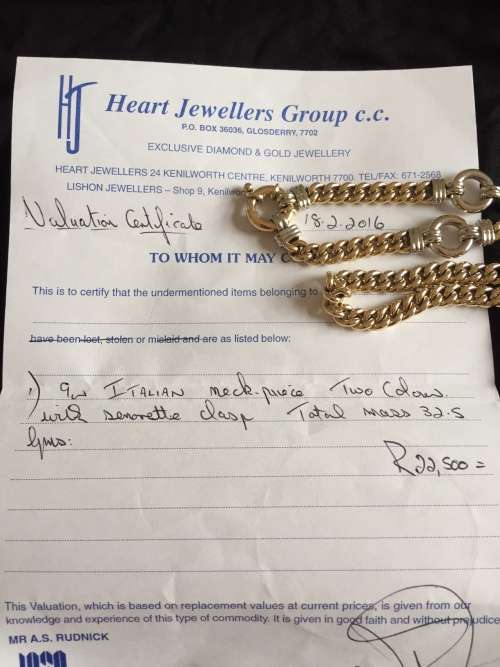 HJ
Heart Jewellers Group c.c.
P.O. BOX 36036, GLOSDERRY, 7702
EXCLUSIVE DIAMOND & GOLD JEWELLERY
HEART JEWELLERS 24 KENILWORTH CENTRE, KENILWORTH 7700. TEL/FAX: 671-2568
LISHON JEWELLERS – Shop 9,
Valuation Certificate 18-2-2016
TO WHOM IT MAY
This is to certify that the undermentioned items belonging to
have been lost, stolen or mislaid and are as listed below:
1) 9ct ITALIAN neck-piece Two Colour
with senorette clasp Total mass 32.5
gms:
R22,500=
This Valuation, which is based on replacement values at current prices, is given from our
knowledge and experience of this type of commodity. It is given in good faith and without prejudice
MR A.S. RUDNICK